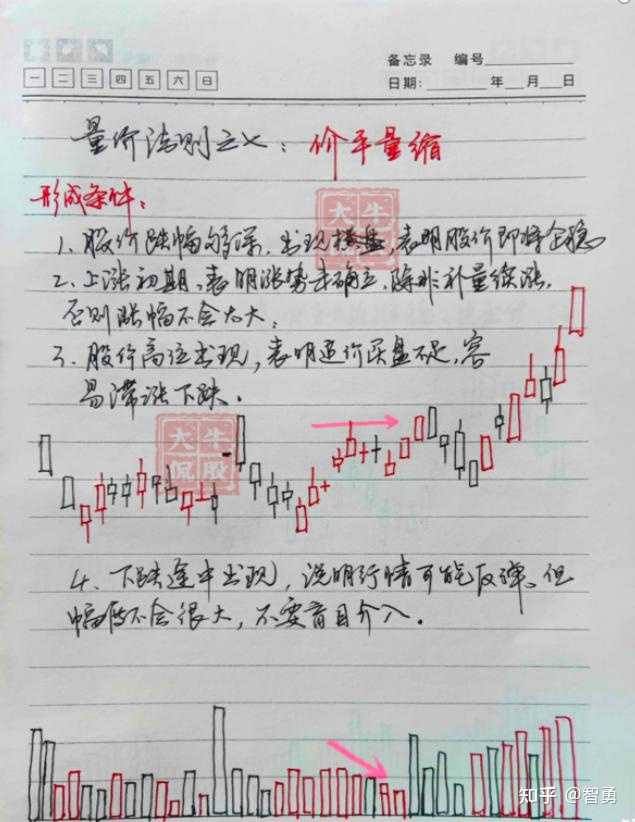 备忘录 编号
一 二 三 四 五 六 日
日期: 年 月 日
量价法则之七：价平量缩
形成条件：
大牛
侃股
1、股价跌幅够深，出现横盘，表明股价即将企稳
2、上涨初期，表明涨势未确立，除非补量续涨，
否则涨幅不会太大。
3、股价高位出现，表明追价买盘不足，容
易滞涨下跌．
大牛
侃股
4、下跌途中出现，说明行情可能反弹。但
幅度不会很大，不要盲目介入．
知乎 @智勇